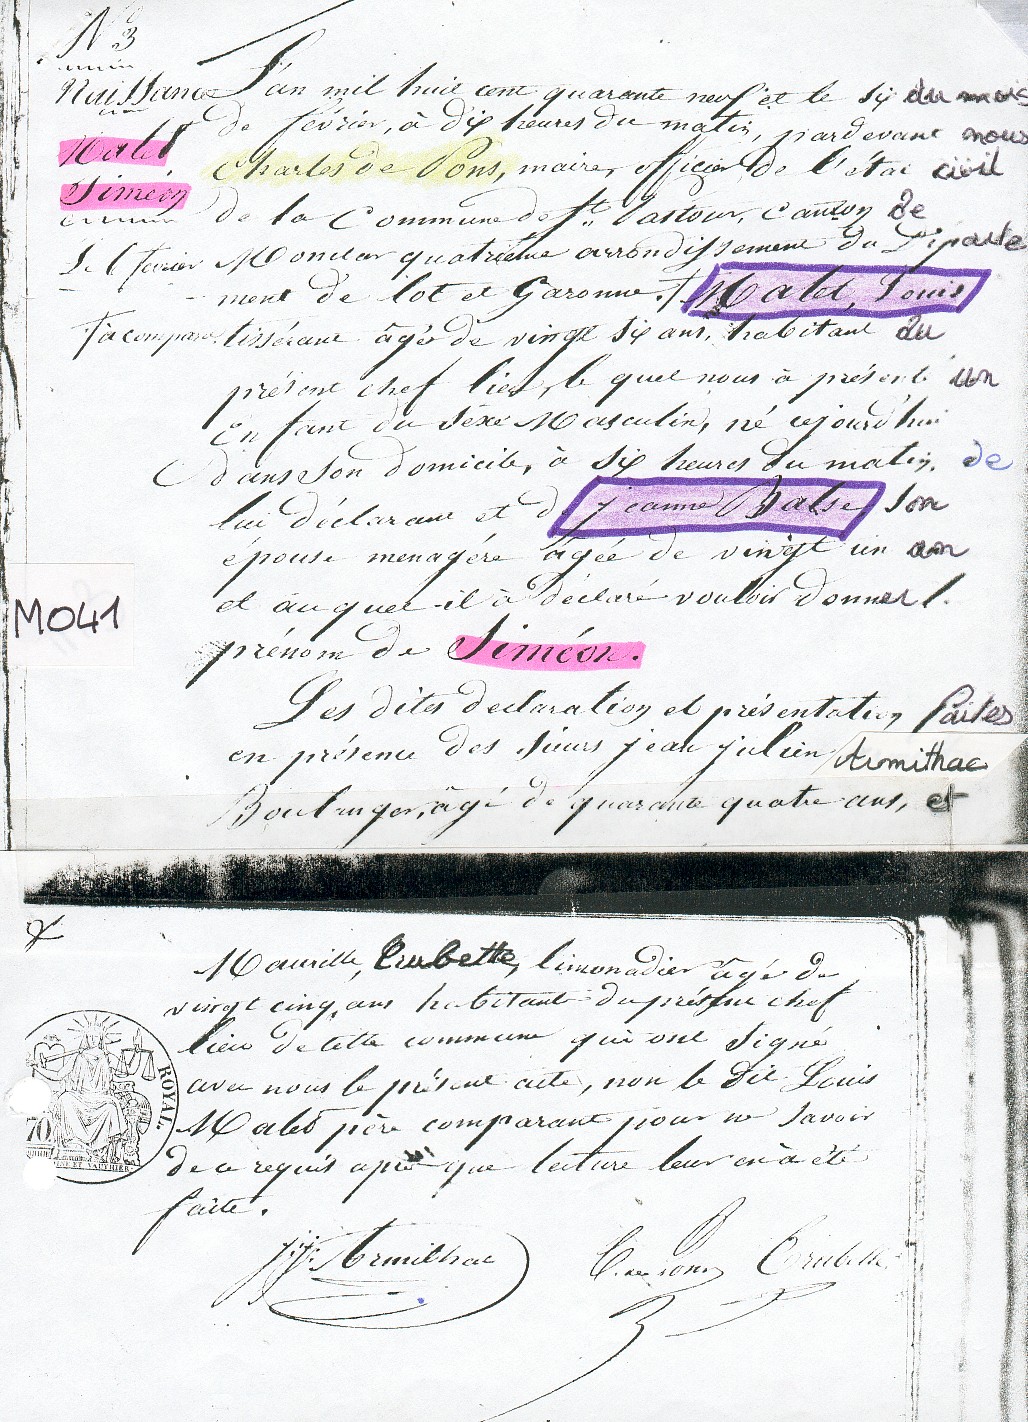 N° 3
Naissance
Malet
Siméon
Le 6 février
L'an mil huit cent quarante neuf et le six du mois
de février, à dix heures du matin, pardevant nous
Charles de Pons, maire, officier de l'état civil
de la Commune de St. Pastour, Canton de
Monclar quatrième arrondissement du Départe
ment de lot et Garonne. † Malet, Louis
† a comparu
tisserant âgé de vingt six ans, habitant du
présent chef lieu, le quel nous à présenté un
enfant du sexe Masculin, né cejourd'hui
dans son domicile, à six heures du matin, de
lui déclarant et de jeanne Balse, son
épouse menagère âgée de vingt un an
et auquel il à déclaré vouloir donner l.
M041
prénom de Siméon.
Les dites declaration et présentation faites
en présence des sieurs jean julien Armithac
Boulanger, âgé de quarante quatre ans, et
Maurille, Crubette, limonadier âgé de
vingt cinq ans habitant du présent chef
lieu de cette commune qui ont signé
avec nous le présent acte, non le dit Louis
Malet père comparant pour ne savoir
de ce requis après que lecture leur en à été
faite.
ROYAL.
70
j.j. Armilhac C. de Pons Crubette